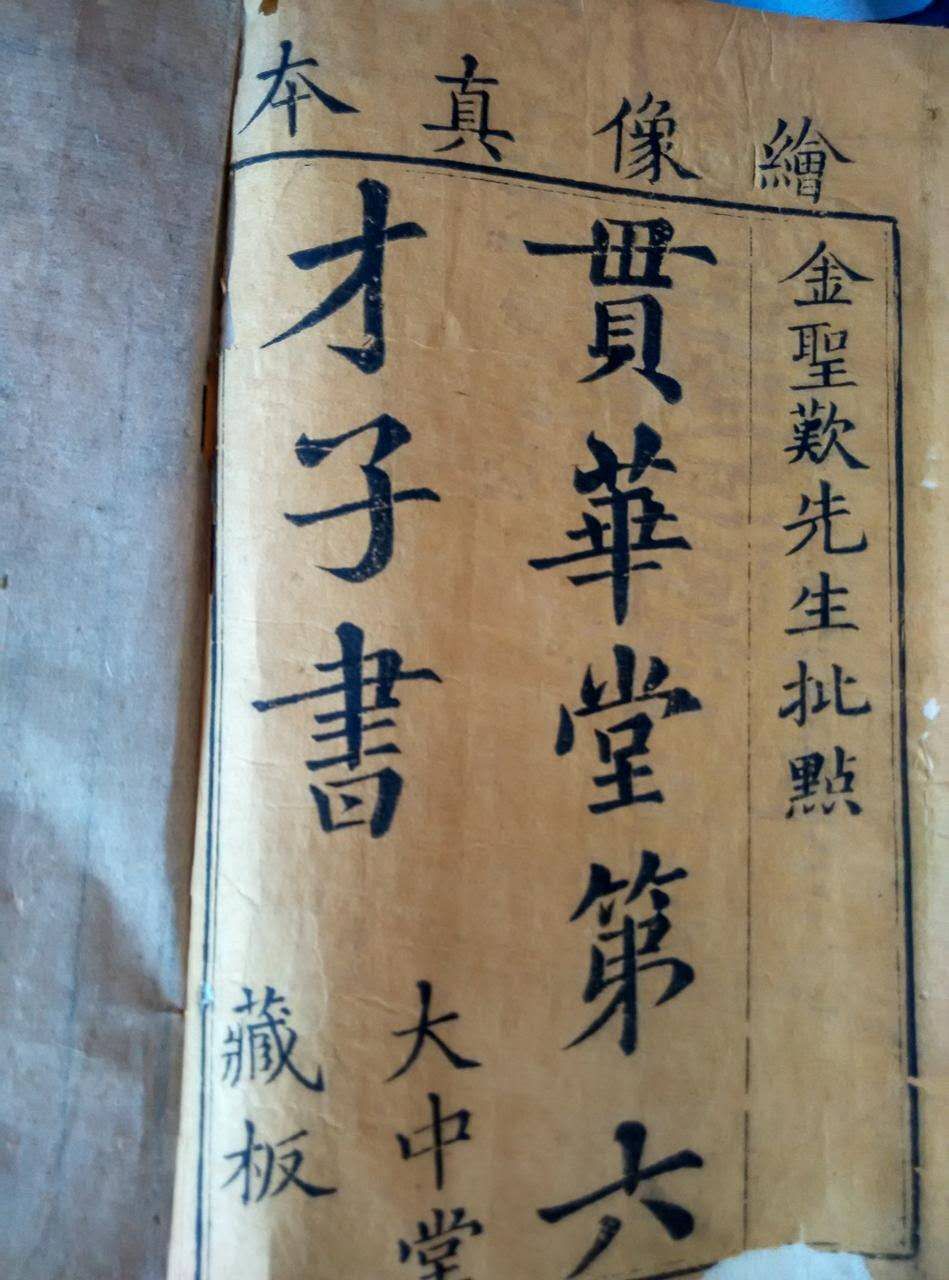 繪像真本
金聖歎先生批點
貫華堂第六
才子書
大中堂
藏板